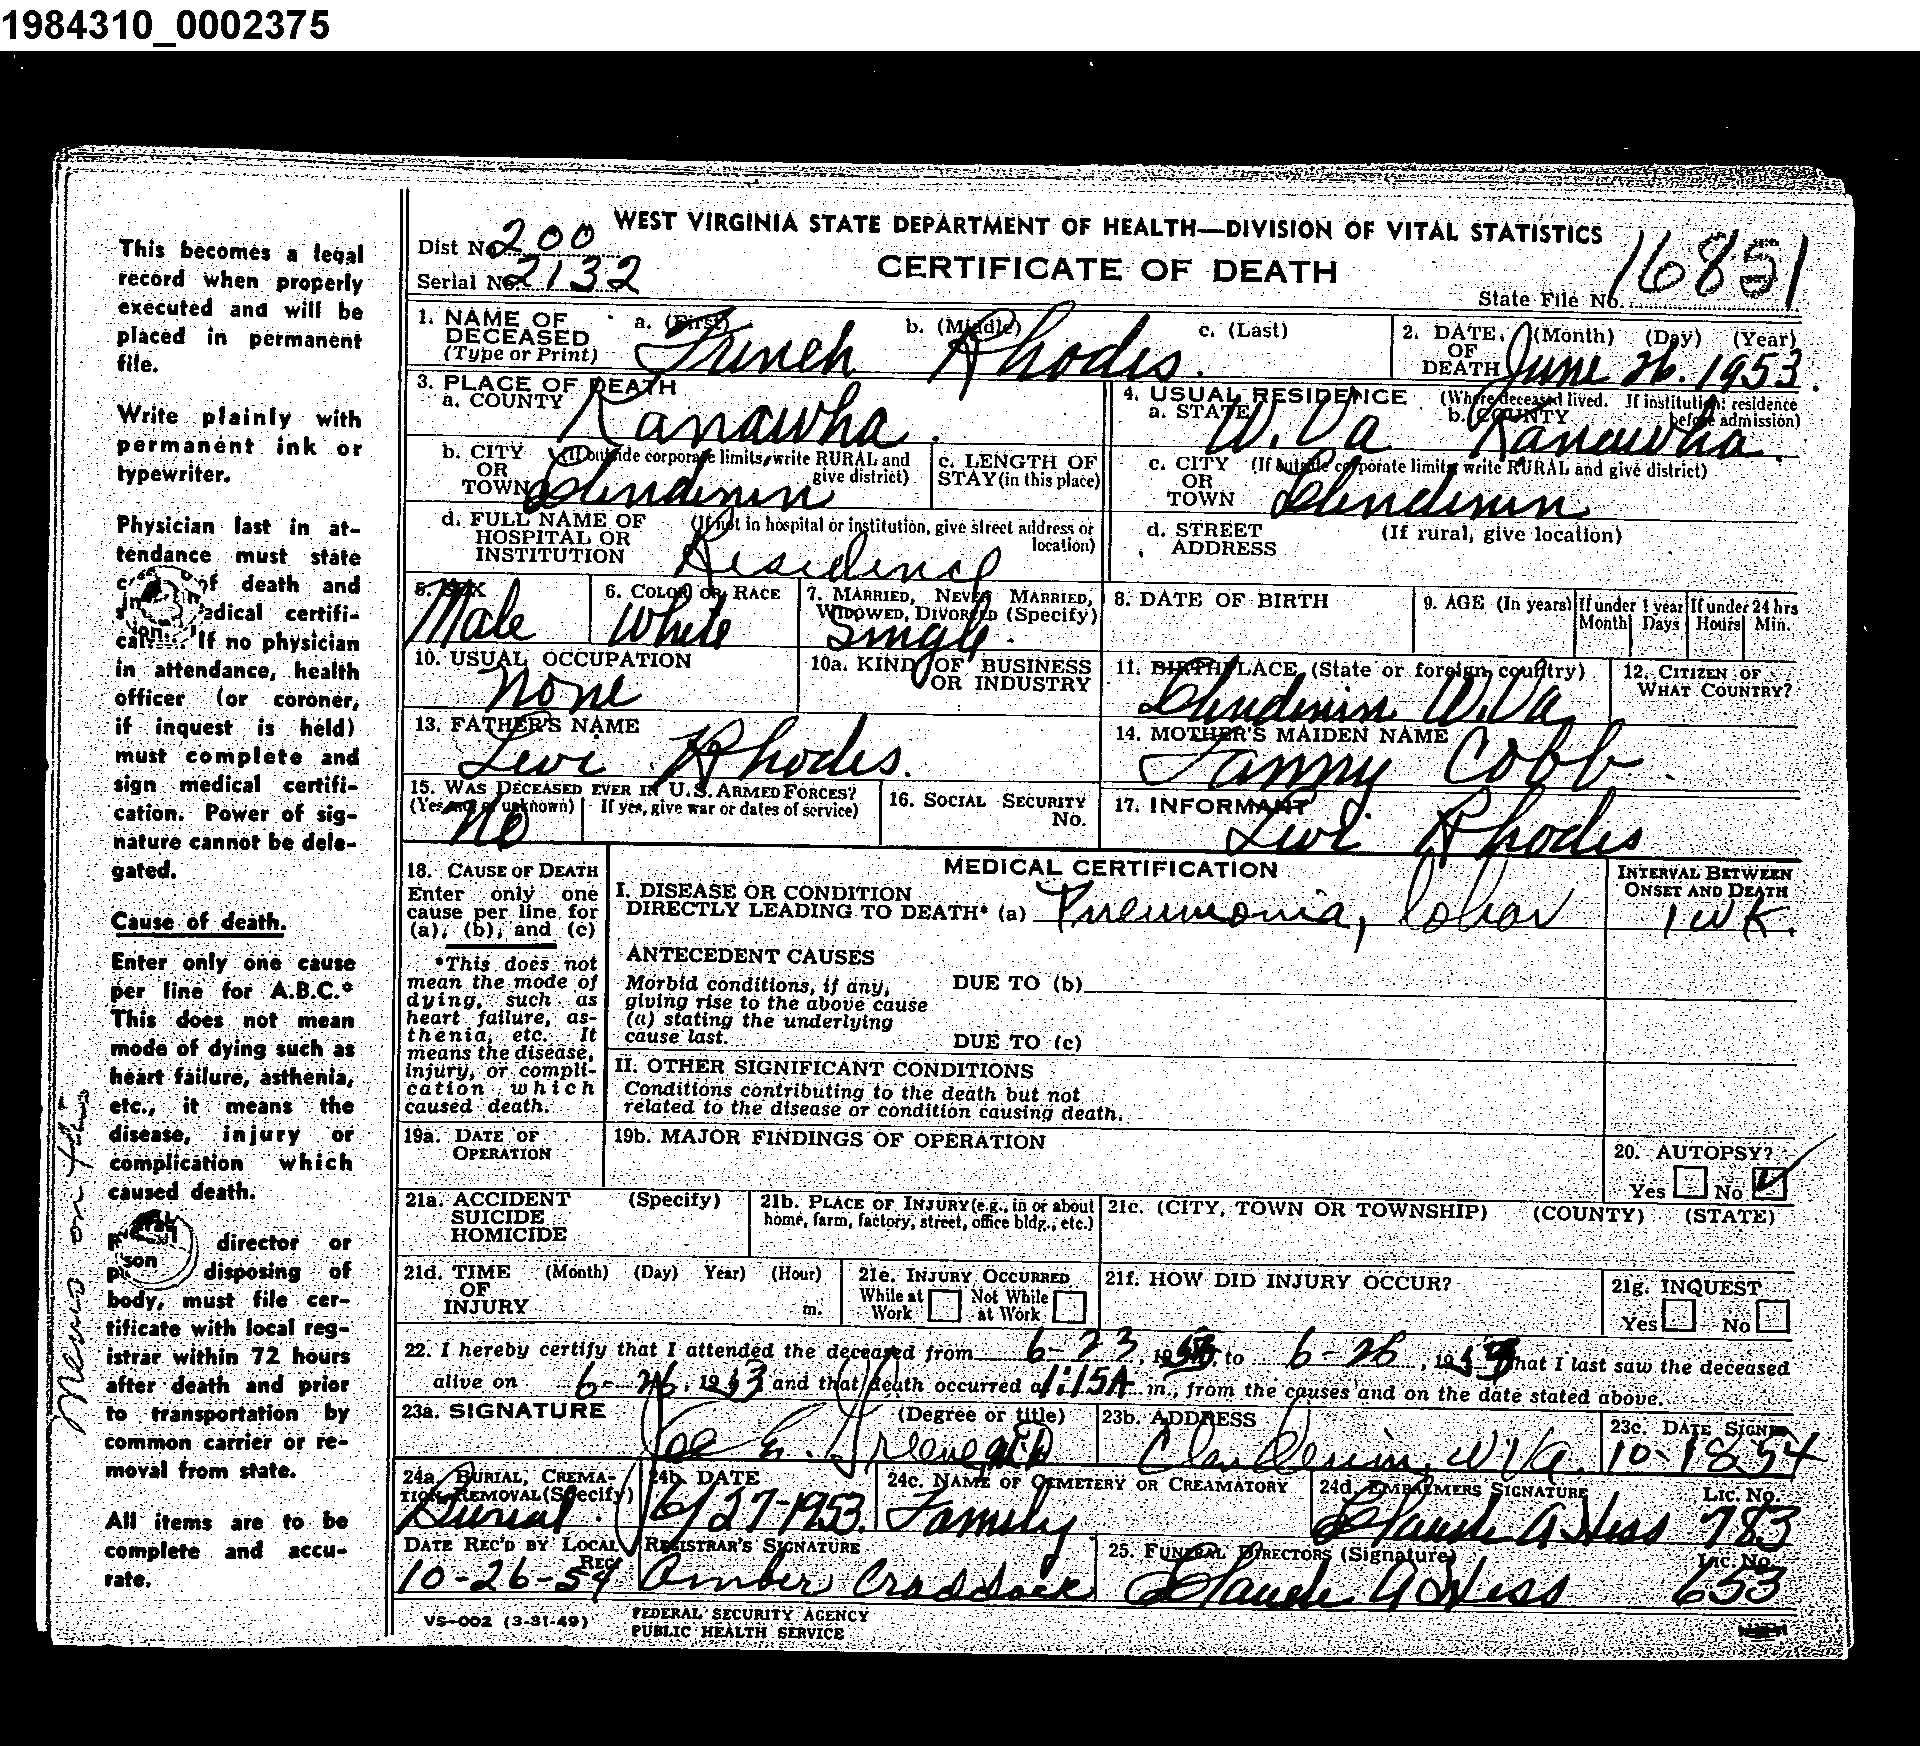 1984310_0002375
WEST VIRGINIA STATE DEPARTMENT OF HEALTH—DIVISION OF VITAL STATISTICS
Dist No. 200
Serial No. 2132
CERTIFICATE OF DEATH
State File No. 16851
1. NAME OF DECEASED (Type or Print) a. (First) b. (Middle) c. (Last)
French Rhodes.
2. DATE OF DEATH (Month) (Day) (Year)
June 26. 1953.
3. PLACE OF DEATH
a. COUNTY Kanawha.
4. USUAL RESIDENCE (Where deceased lived. If institution: residence before admission)
a. STATE W. Va b. COUNTY Kanawha.
b. CITY OR TOWN (If outside corporate limits, write RURAL and give district) Clendenin
c. LENGTH OF STAY (in this place)
c. CITY OR TOWN (If outside corporate limits write RURAL and give district) Clendenin
d. FULL NAME OF HOSPITAL OR INSTITUTION (If not in hospital or institution, give street address or location) Residence
d. STREET ADDRESS (If rural, give location)
5. SEX Male
6. COLOR OR RACE White
7. MARRIED, NEVER MARRIED, WIDOWED, DIVORCED (Specify) Single.
8. DATE OF BIRTH
9. AGE (In years) If under 1 year Month Days If under 24 hrs Hours Min.
10. USUAL OCCUPATION None
10a. KIND OF BUSINESS OR INDUSTRY
11. BIRTHPLACE (State or foreign country) Clendenin W.Va.
12. CITIZEN OF WHAT COUNTRY?
13. FATHER'S NAME Levi Rhodes.
14. MOTHER'S MAIDEN NAME Fanny Cobb.
15. WAS DECEASED EVER IN U.S. ARMED FORCES? (Yes, no, or unknown) If yes, give war or dates of service) No
16. SOCIAL SECURITY No.
17. INFORMANT Levi Rhodes
18. CAUSE OF DEATH
Enter only one cause per line for (a), (b), and (c)
*This does not mean the mode of dying, such as heart failure, asthenia, etc. It means the disease, injury, or complication which caused death.
MEDICAL CERTIFICATION
INTERVAL BETWEEN ONSET AND DEATH
I. DISEASE OR CONDITION DIRECTLY LEADING TO DEATH* (a) Pneumonia, lobar 1 WK.
ANTECEDENT CAUSES
Morbid conditions, if any, giving rise to the above cause (a) stating the underlying cause last.
DUE TO (b)
DUE TO (c)
II. OTHER SIGNIFICANT CONDITIONS
Conditions contributing to the death but not related to the disease or condition causing death.
19a. DATE OF OPERATION
19b. MAJOR FINDINGS OF OPERATION
20. AUTOPSY? Yes No
21a. ACCIDENT SUICIDE HOMICIDE (Specify)
21b. PLACE OF INJURY (e.g., in or about home, farm, factory, street, office bldg., etc.)
21c. (CITY, TOWN OR TOWNSHIP) (COUNTY) (STATE)
21d. TIME OF INJURY (Month) (Day) Year) (Hour) m.
21e. INJURY OCCURRED While at Work Not While at Work
21f. HOW DID INJURY OCCUR?
21g. INQUEST Yes No
22. I hereby certify that I attended the deceased from 6-23, 1953, to 6-26, 1953 that I last saw the deceased
alive on 6-26, 1953 and that death occurred at 1:15A m., from the causes and on the date stated above.
23a. SIGNATURE (Degree or title)
Joe E.
23b. ADDRESS Clendenin, W Va.
23c. DATE SIGNED 10-18 54
24a. BURIAL, CREMATION REMOVAL (Specify) Burial.
24b. DATE 6/27-1953.
24c. NAME OF CEMETERY OR CREAMATORY Family.
24d. EMBALMERS SIGNATURE Claude A Hess LIC. NO. 783
DATE REC'D BY LOCAL REG. 10-26-54
REGISTRAR'S SIGNATURE Amber Craddock
25. FUNERAL DIRECTORS (Signature) Claude A Hess Lic. No. 653
VS-002 (3-31-49)
FEDERAL SECURITY AGENCY
PUBLIC HEALTH SERVICE
This becomes a legal
record when properly
executed and will be
placed in permanent
file.
Write plainly with
permanent ink or
typewriter.
Physician last in at-
tendance must state
of death and
medical certifi-
If no physician
in attendance, health
officer (or coroner,
if inquest is held)
must complete and
sign medical certifi-
cation. Power of sig-
nature cannot be dele-
gated.
Cause of death.
Enter only one cause
per line for A.B.C.*
This does not mean
mode of dying such as
heart failure, asthenia,
etc., it means the
disease, injury or
complication which
caused death.
director or
disposing of
body, must file cer-
tificate with local reg-
istrar within 72 hours
after death and prior
to transportation by
common carrier or re-
moval from state.
All items are to be
complete and accu-
rate.